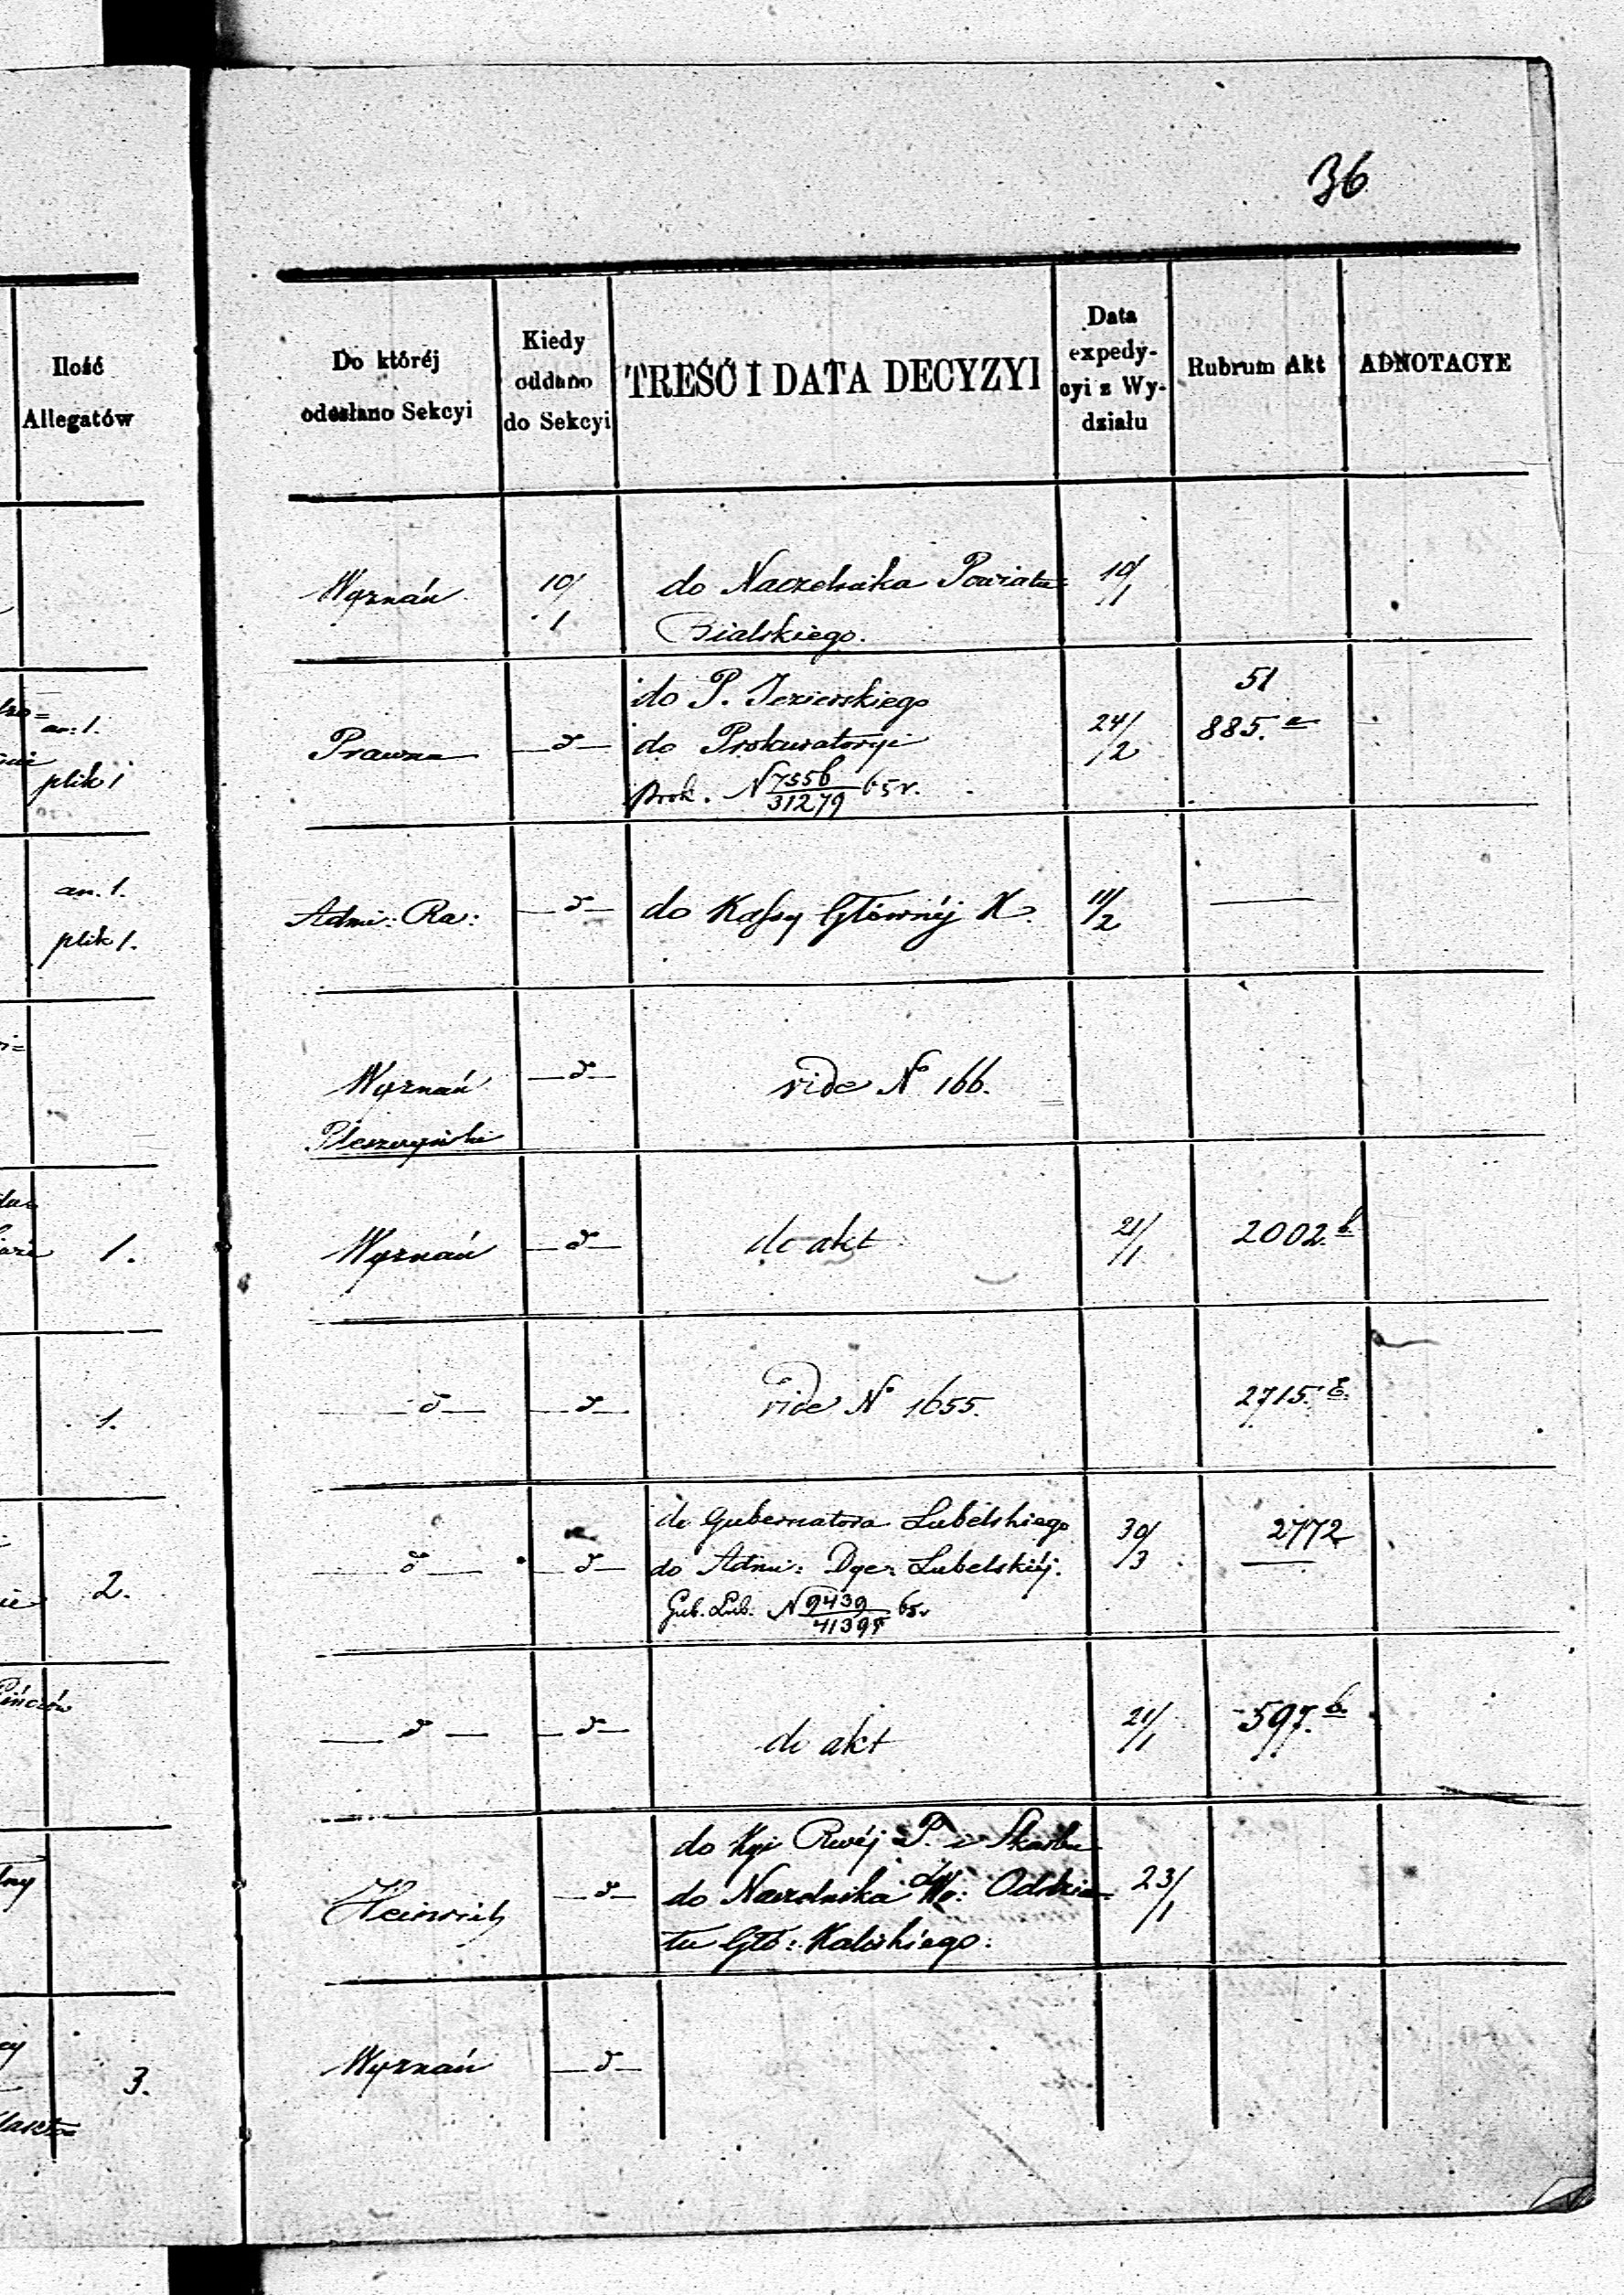 36
Ilość
Allegatów
Do któréj
odesłano Sekcyi
Kiedy
oddano
do Sekcyi
TREŚĆ I DATA DECYZYI
Data
expedy-
cyi z Wy-
działu
Rubrum Akt
ADNOTACYE
Wyznań 10/1 do Naczelnika Powiatu 10/1
Bialskiego.
an: 1.
plik 1
do P. Jezierskiego 51
Prawna — d — do Prokuratoryi 24/2 885. a
Prok. N 7556/31279 65 r.
an. 1.
plik 1.
Admi: Ra: — d — do Kassy Głównéj K. 11/2 —
Wyznań — d — vide N° 166.
Pleszczyński
1.
Wyznań — d — do akt 21/1 2002. b
1.
— d — — d — vide N° 1655. 2715.
2.
do Gubernatora Lubelskiego 30/3 2772
— d — — d — do Admi: Dye: Lubelskiéj.
Gub. Lub. N 9439/41395 65 r
Pińczów
— d — — d — do akt 21/1 597. b.
do Kyi Rwéj P. i Skarbu
Heinrich — d — do Naczelnika Wo: Oddzia= 23/1
łu Głó: Kaliskiego.
3.
Wyznań — d —